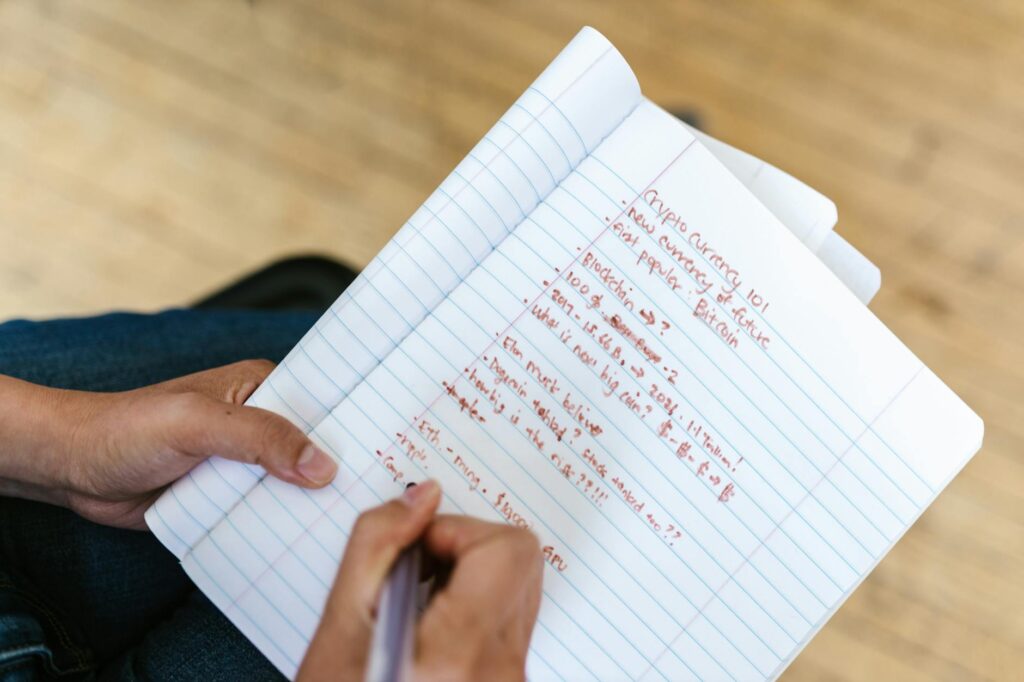 Cryptocurrency 101
- new currency of future
- first popular : Bitcoin
- Blockchain → ?
- 100 of
- 2017 - 15.66B. → 2021 : 1.1 Trillion!
- What is now big coin? $ - $ - $ → $
- Elon musk believer
- Dogecoin tanked? stock tanked too??
- how big is the risk??!!!
- Eth. - mining.
GPU
- ripple.